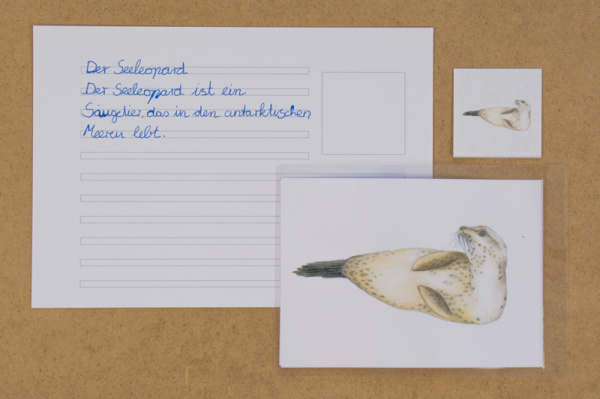 Der Seeleopard
Der Seeleopard ist ein
Säugetier, das in den antarktischen
Meeren lebt.